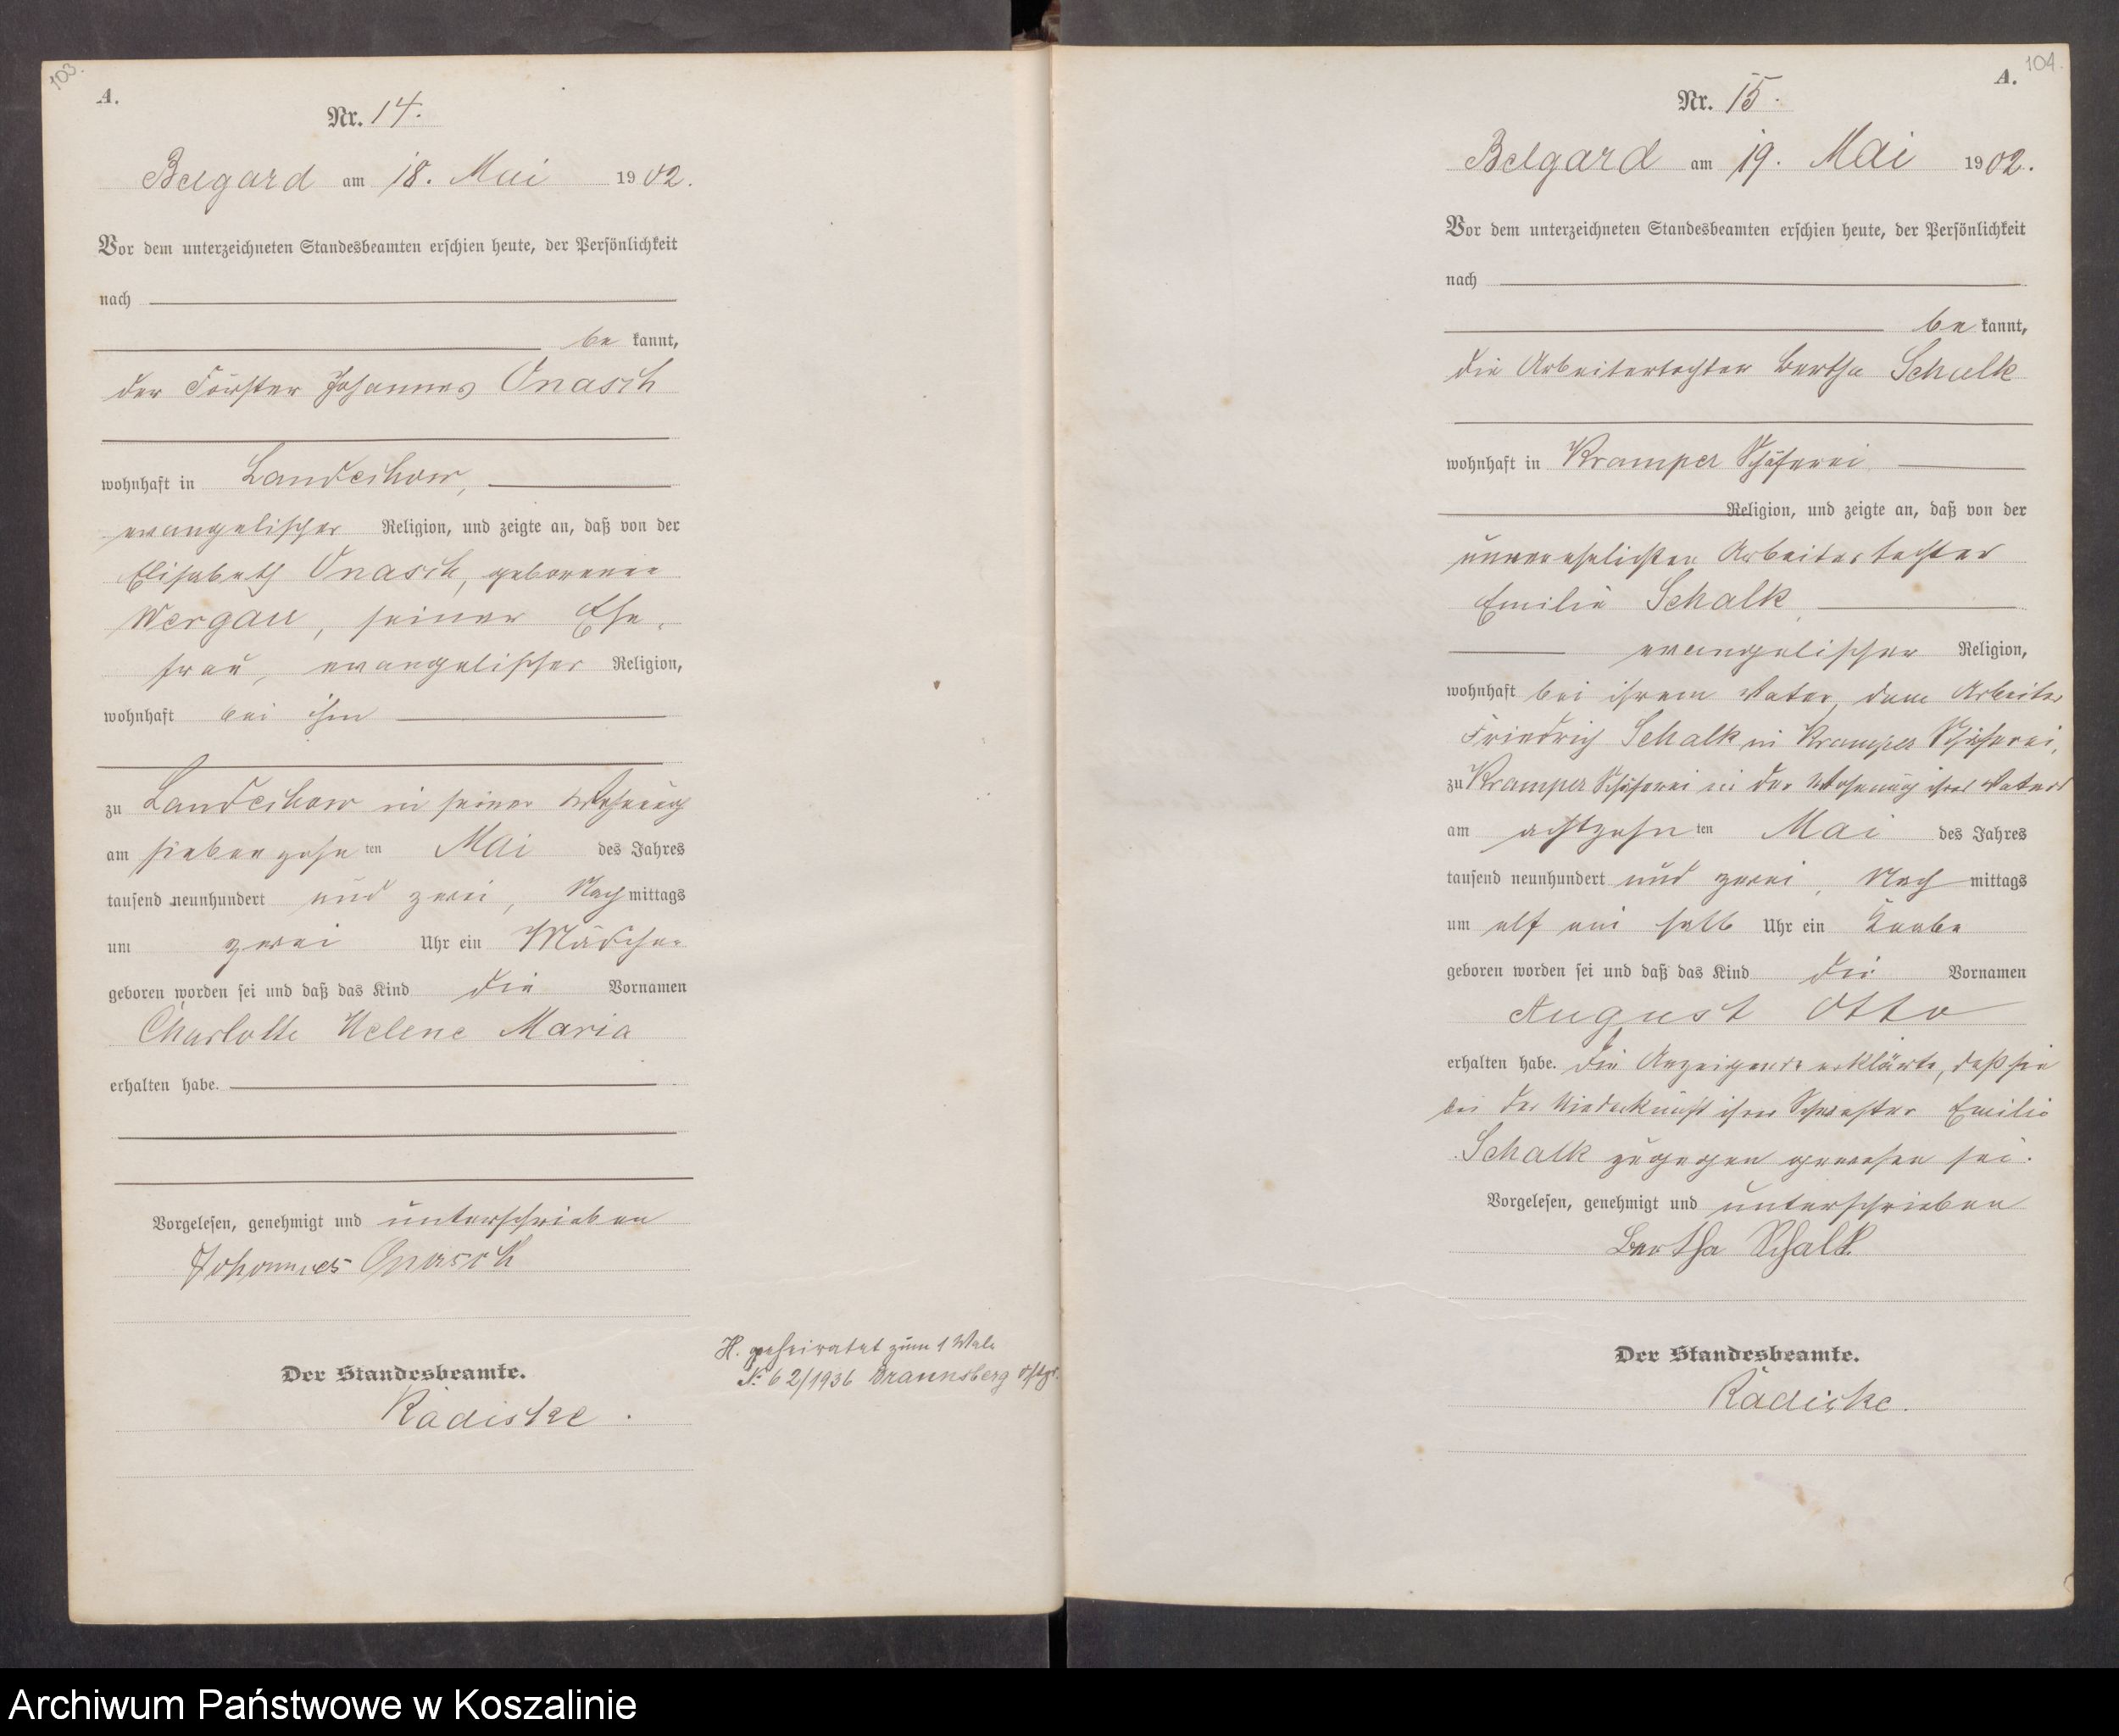 103.
A.
Nr. 14.
Belgard am 18. Mai 1902.
Vor dem unterzeichneten Standesbeamten erschien heute, der Persönlichkeit
nach
be kannt,
der Förster Johannes Onasch
wohnhaft in Landechow,
evangelischer Religion, und zeigte an, daß von der
Elisabeth Onasch, geborenen
Wergau, seiner Ehe-
frau, evangelischer Religion,
wohnhaft bei ihm
zu Landechow in seiner Wohnung
am siebenzehn ten Mai des Jahres
tausend neunhundert und zwei, Nach mittags
um zwei Uhr ein Mädchen
geboren worden sei und daß das Kind die Vornamen
Charlotte Helene Maria
erhalten habe.
Vorgelesen, genehmigt und unterschrieben
Johannes Onasch
Der Standesbeamte.
Radiske.
H. geheiratet zum 1 Male
Nr. 62/1936 Braunsberg Ostpr.
104.
A.
Nr. 15.
Belgard am 19. Mai 1902.
Vor dem unterzeichneten Standesbeamten erschien heute, der Persönlichkeit
nach
be kannt,
die Arbeitertochter Bertha Schalk
wohnhaft in Kramper Schäferei
Religion, und zeigte an, daß von der
unverehelichten Arbeitertochter
Emilie Schalk,
evangelischer Religion,
wohnhaft bei ihrem Vater, dem Arbeiter
Friedrich Schalk in Kramper Schäferei,
zu Kramper Schäferei in der Wohnung ihres Vaters
am achtzehn ten Mai des Jahres
tausend neunhundert und zwei, Nach mittags
um elf ein halb Uhr ein Knabe
geboren worden sei und daß das Kind die Vornamen
August Otto
erhalten habe. Die Anzeigende erklärte, daß sie
bei der Niederkunft ihrer Schwester Emilie
Schalk zugegen gewesen sei.
Vorgelesen, genehmigt und unterschrieben
Bertha Schalk
Der Standesbeamte.
Radiske.
Archiwum Państwowe w Koszalinie